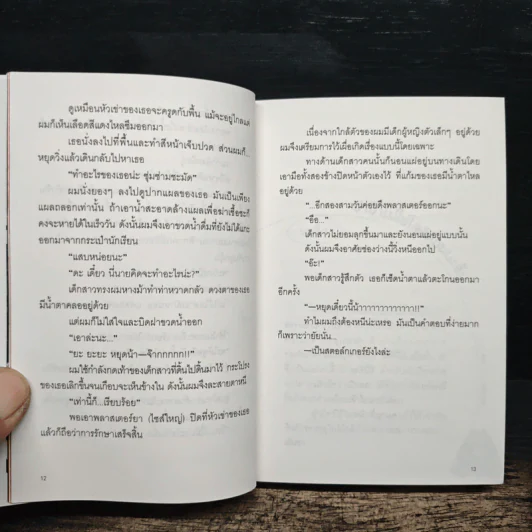 ดูเหมือนหัวเข่าของเธอจะครูดกับพื้น แม้จะอยู่ไกลแต่
ผมก็เห็นเลือดสีแดงไหลซึมออกมา
เธอนั่งลงไปที่พื้นและทำสีหน้าเจ็บปวด ส่วนผมก็...
หยุดวิ่งแล้วเดินกลับไปหาเธอ
"ทำอะไรของเธอน่ะ ซุ่มซ่ามชะมัด"
ผมนั่งยองๆ ลงไปดูปากแผลของเธอ มันเป็นเพียง
แผลถลอกเท่านั้น ถ้าเอาน้ำสะอาดล้างแผลเพื่อฆ่าเชื้อซะก็
คงจะหายได้ในเร็ววัน ดังนั้นผมจึงเอาขวดน้ำดื่มที่ยังไม่ได้แกะ
ออกมาจากกระเป๋านักเรียน
"แสบหน่อยนะ"
"ดะ เดี๋ยว นี่นายคิดจะทำอะไรน่ะ?"
เด็กสาวทรงผมหางม้าทำท่าหวาดกลัว ดวงตาของเธอ
มีน้ำตาคลออยู่ด้วย
แต่ผมก็ไม่ใส่ใจและบิดฝาขวดน้ำออก
"เอาล่ะนะ..."
"ยะ ยะยะ หยุดน้า—จ๊ากกกกก!!"
ผมใช้กำลังกดเท้าของเด็กสาวที่ดิ้นไปดิ้นมาไว้ กระโปรง
ของเธอเลิกขึ้นจนเกือบจะเห็นข้างใน ดังนั้นผมจึงละสายตาหนี
"เท่านี้ก็...เรียบร้อย"
พอเอาพลาสเตอร์ยา (ไซส์ใหญ่) ปิดที่หัวเข่าของเธอ
แล้วก็ถือว่าการรักษาเสร็จสิ้น
12
เนื่องจากใกล้ตัวของผมมีเด็กผู้หญิงตัวเล็กๆ อยู่ด้วย
ผมจึงเตรียมการไว้เผื่อเกิดเรื่องแบบนี้โดยเฉพาะ
ทางด้านเด็กสาวคนนั้นก็นอนแผ่อยู่บนทางเดินโดย
เอามือทั้งสองข้างปิดหน้าตัวเองไว้ ที่แก้มของเธอมีน้ำตาไหล
อยู่ด้วย
"...อีกสองสามวันค่อยดึงพลาสเตอร์ออกนะ"
"อือ..."
เด็กสาวไม่ยอมลุกขึ้นมาและยังนอนแผ่อยู่แบบนั้น
ดังนั้นผมจึงอาศัยช่องว่างนี้วิ่งหนีออกไป
"อ๊ะ!"
พอเด็กสาวรู้สึกตัว เธอก็เช็ดน้ำตาแล้วตะโกนออกมา
อีกครั้ง
"—หยุดเดี๋ยวนี้น้าาาาาาาาาาาาา!!"
ทำไมผมถึงต้องหนีน่ะเหรอ มันเป็นคำตอบที่ง่ายมาก
ก็เพราะว่ายัยนั่น...
—เป็นสตอล์กเกอร์ยังไงล่ะ
12